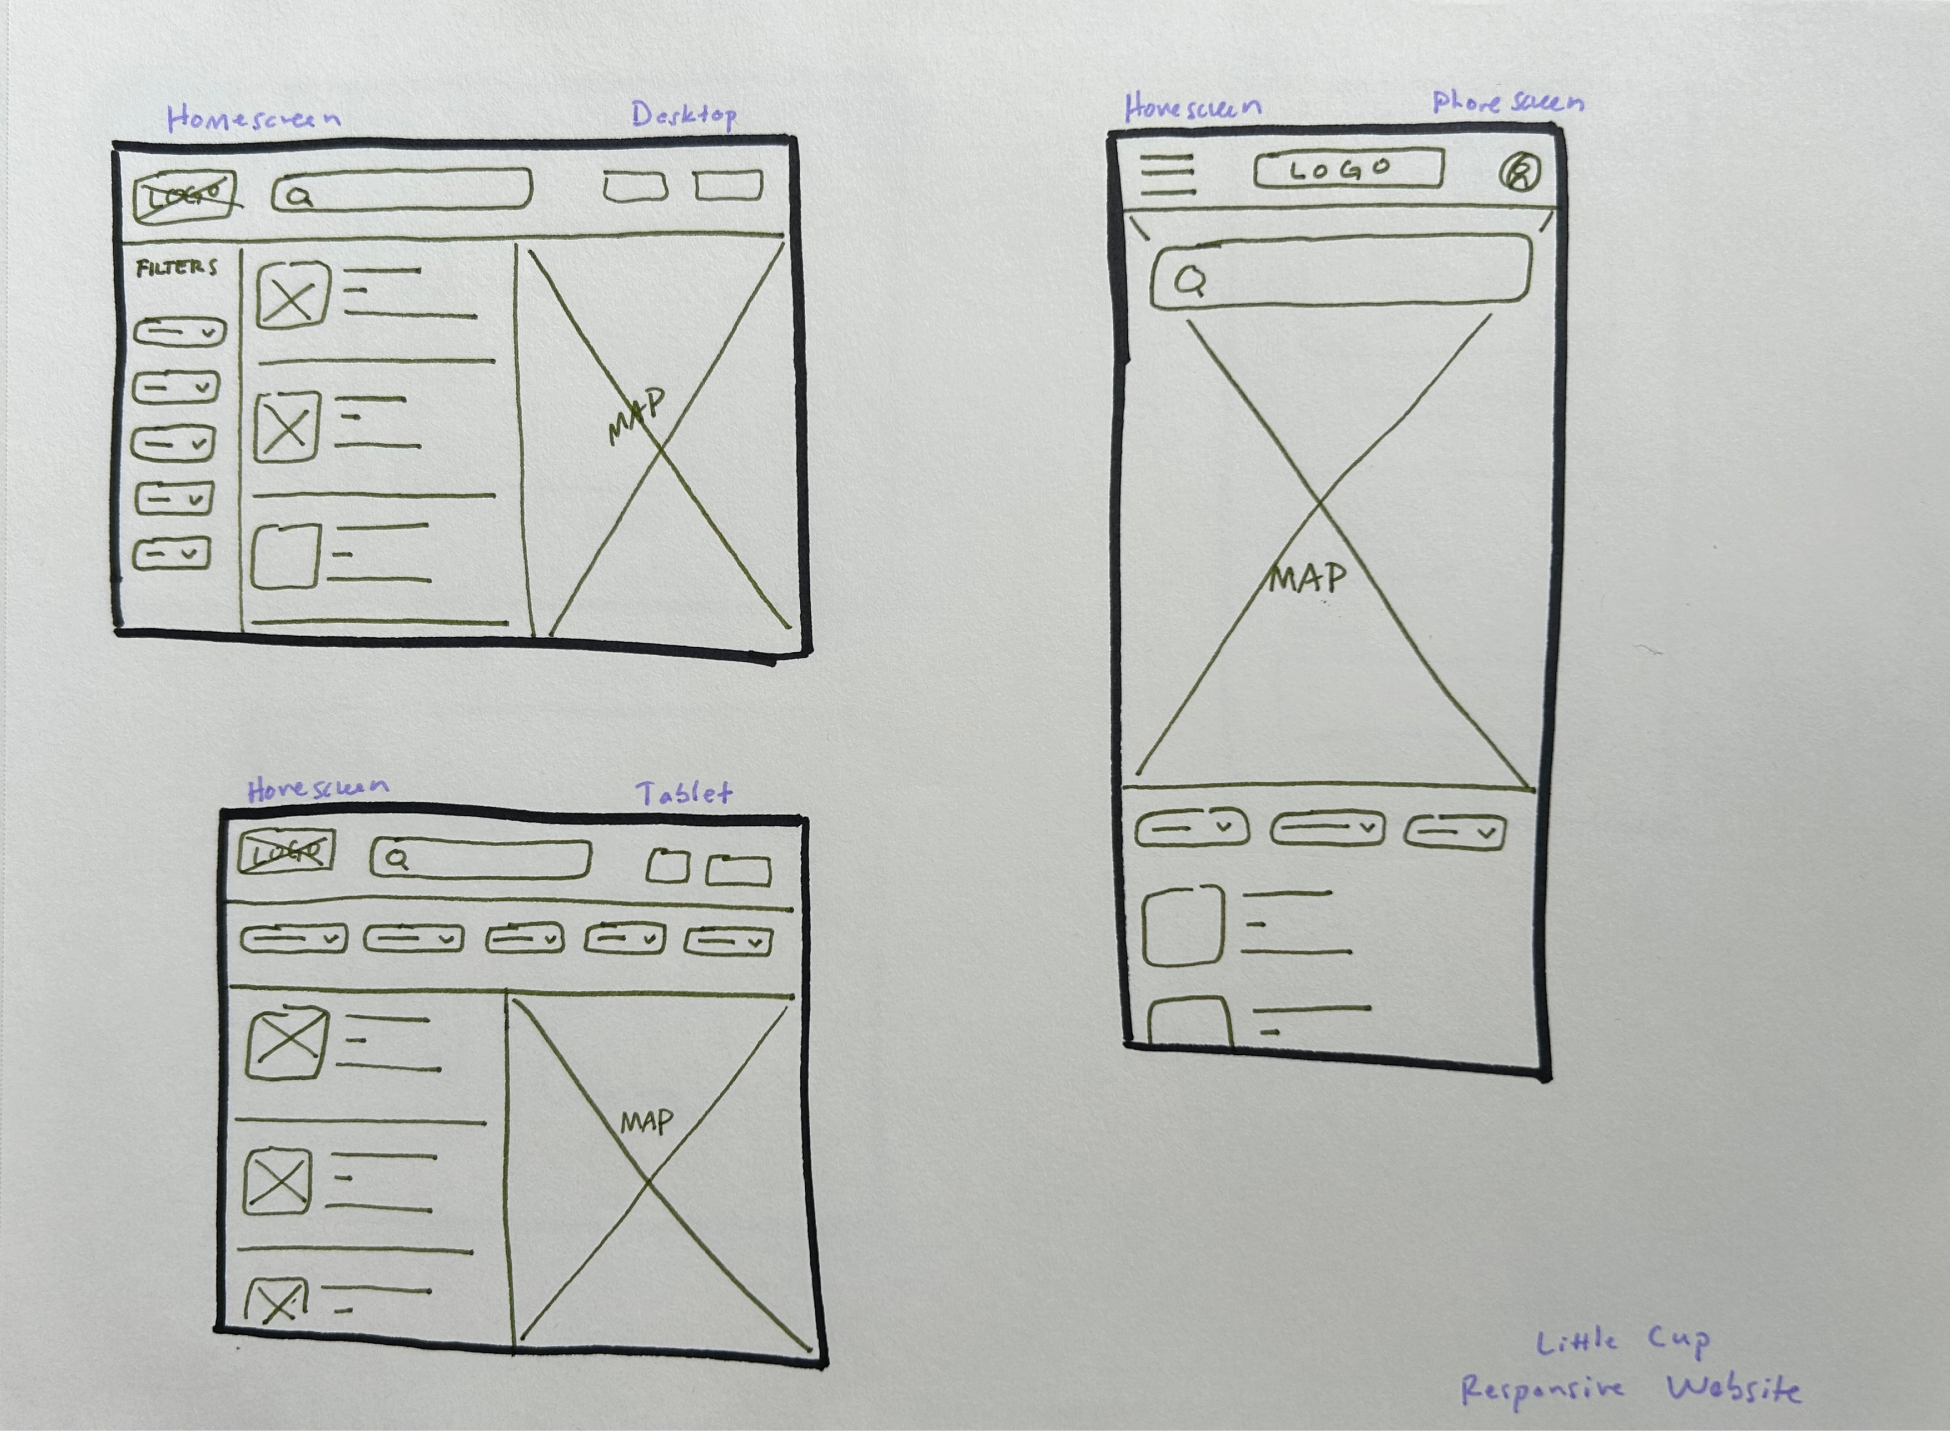 Homescreen Desktop
LOGO
FILTERS
MAP
Homescreen Phone screen
LOGO
MAP
Homescreen Tablet
LOGO
MAP
Little Cup
Responsive Website